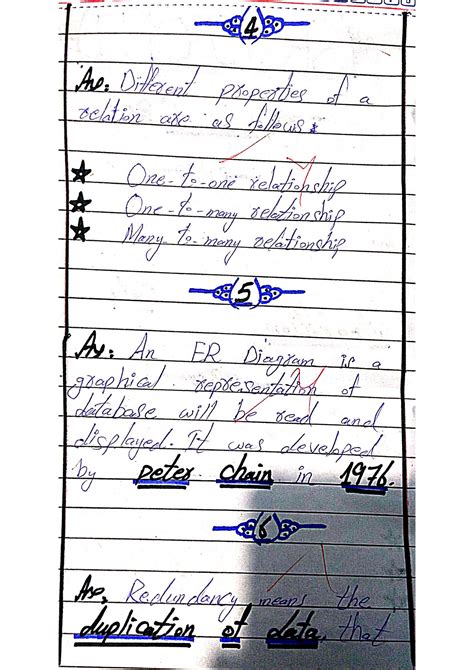 4
Ans: Different properties of a
relation are as follows:
One-to-one relationship
One-to-many relationship
Many to-many relationship
5
An: An ER Diagram is a
graphical representation of
database, will be read and
displayed. It was developed
by peter chain in 1976.
6
Ans, Redundancy means the
duplication of data, that